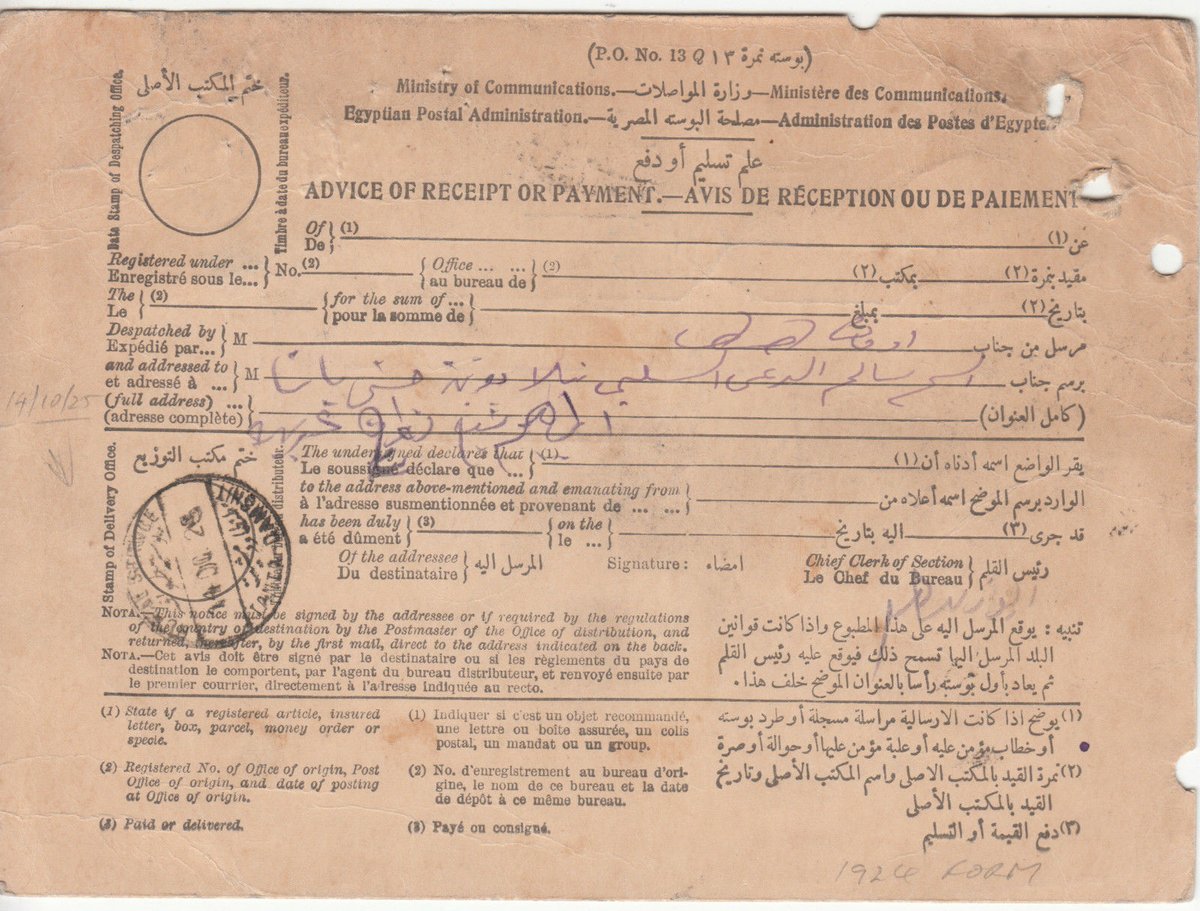 (P.O. No. 13 Q بوسته نمرة ١٣)
Ministry of Communications.—وزارة المواصلات—Ministère des Communications.
Egyptian Postal Administration.—مصلحة البوسته المصرية—Administration des Postes d'Egypte.
علم تسليم أو دفع
ADVICE OF RECEIPT OR PAYMENT.—AVIS DE RÉCEPTION OU DE PAIEMENT
ختم المكتب الأصلي
Date Stamp of Despatching Office.
Timbre à date du bureau expéditeur.
Of (1) عن (١)
De
Registered under ... No. (2) Office ... ... (2) بمكتب (٢) مقيد بنمرة (٢)
Enregistré sous le... au bureau de
The (2) for the sum of ... بمبلغ بتاريخ (٢)
Le pour la somme de
Despatched by M مرسل من جناب
Expédié par...
and addressed to M برسم جناب
et adressé à ...
(full address) ... (كامل العنوان)
(adresse complète)
14/10/25
ختم مكتب التوزيع
Stamp of Delivery Office.
distributeur.
The undersigned declares that (1) يقر الواضع اسمه أدناه أن (١)
Le soussigné déclare que ...
to the address above-mentioned and emanating from الوارد برسم الموضح اسمه أعلاه من
à l'adresse susmentionnée et provenant de ... ...
has been duly (3) on the اليه بتاريخ قد جرى (٣)
a été dûment le ...
Of the addressee المرسل اليه Signature : امضاء Chief Clerk of Section رئيس القلم
Du destinataire Le Chef du Bureau
NOTA.—This notice must be signed by the addressee or if required by the regulations
of the country of destination by the Postmaster of the Office of distribution, and
returned, thereafter, by the first mail, direct to the address indicated on the back.
NOTA.—Cet avis doit être signé par le destinataire ou si les règlements du pays de
destination le comportent, par l'agent du bureau distributeur, et renvoyé ensuite par
le premier courrier, directement à l'adresse indiquée au recto.
تنبيه : يوقع المرسل اليه على هذا المطبوع واذا كانت قوانين
البلد المرسل اليها تسمح ذلك فيوقع عليه رئيس القلم
ثم يعاد بأول بوسته رأسا بالعنوان الموضح خلف هذا .
(1) State if a registered article, insured
letter, box, parcel, money order or
specie.
(2) Registered No. of Office of origin, Post
Office of origin, and date of posting
at Office of origin.
(3) Paid or delivered.
(1) Indiquer si c'est un objet recommandé,
une lettre ou boîte assurée, un colis
postal, un mandat ou un group.
(2) No. d'enregistrement au bureau d'ori-
gine, le nom de ce bureau et la date
de dépôt à ce même bureau.
(3) Payé ou consigné.
(١) يوضح اذا كانت الارسالية مراسلة مسجلة أو طرد بوسته
أو خطاب مؤمن عليه أو علبة مؤمن عليها أو حوالة أو صرة
(٢) نمرة القيد بالمكتب الاصلى واسم المكتب الأصلى وتاريخ
القيد بالمكتب الأصلى
(٣) دفع القيمة أو التسليم
1924 FORM